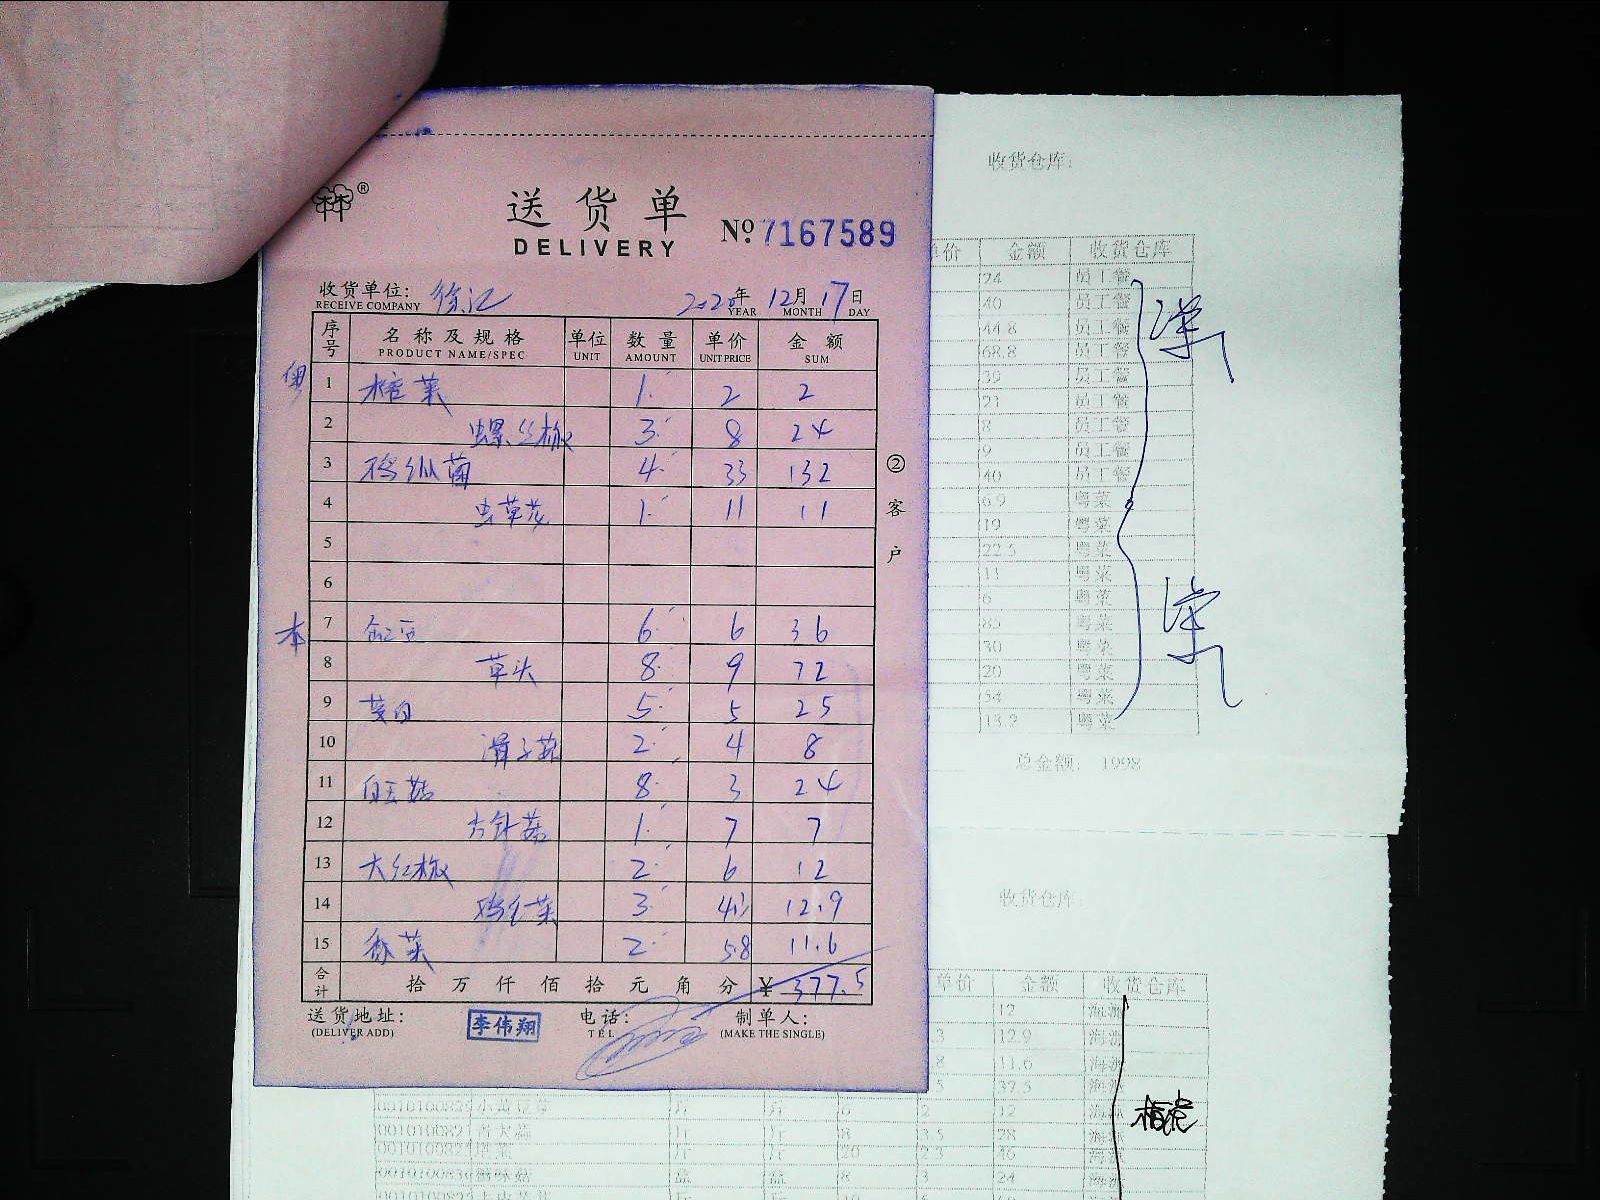 ®
送货单
DELIVERY
№ 7167589
收货单位: 徐汇 2020年 12月 17日
RECEIVE COMPANY YEAR MONTH DAY
序号 名称及规格 单位 数量 单价 金额
PRODUCT NAME/SPEC UNIT AMOUNT UNIT PRICE SUM
1 榨菜 1 2 2
2 螺丝椒 3 8 24
3 鸡纵菌 4 33 132
4 虫草花 1 11 11
5
6
本 7 豇豆 6 6 36
8 草头 8 9 72
9 茭白 5 5 25
10 滑子菇 2 4 8
11 白玉菇 8 3 24
12 金针菇 1 7 7
13 大红椒 2 6 12
14 鸡毛菜 3 4.3 12.9
15 香菜 2 5.8 11.6
合计 拾 万 仟 佰 拾 元 角 分 ¥ 377.5
送货地址: 李伟翔 电话: 制单人:
(DELIVER ADD) TEL (MAKE THE SINGLE)
②客户
收货仓库:
单价 金额 收货仓库
24 员工餐
40 员工餐
44.8 员工餐
68.8 员工餐
39 员工餐
21 员工餐
8 员工餐
9 员工餐
40 员工餐
6.9 粤菜
19 粤菜
22.5 粤菜
11 粤菜
6 粤菜
85 粤菜
30 粤菜
20 粤菜
54 粤菜
13.2 粤菜
总金额: 1998
收货仓库:
单价 金额 收货仓库
12
3 12.9
8 11.6
5 37.5
小黄豆芽 斤 斤 6 2 12
斤 斤 8 3.5 28
斤 斤 20 2.3 46
盒 盒 8 3 24